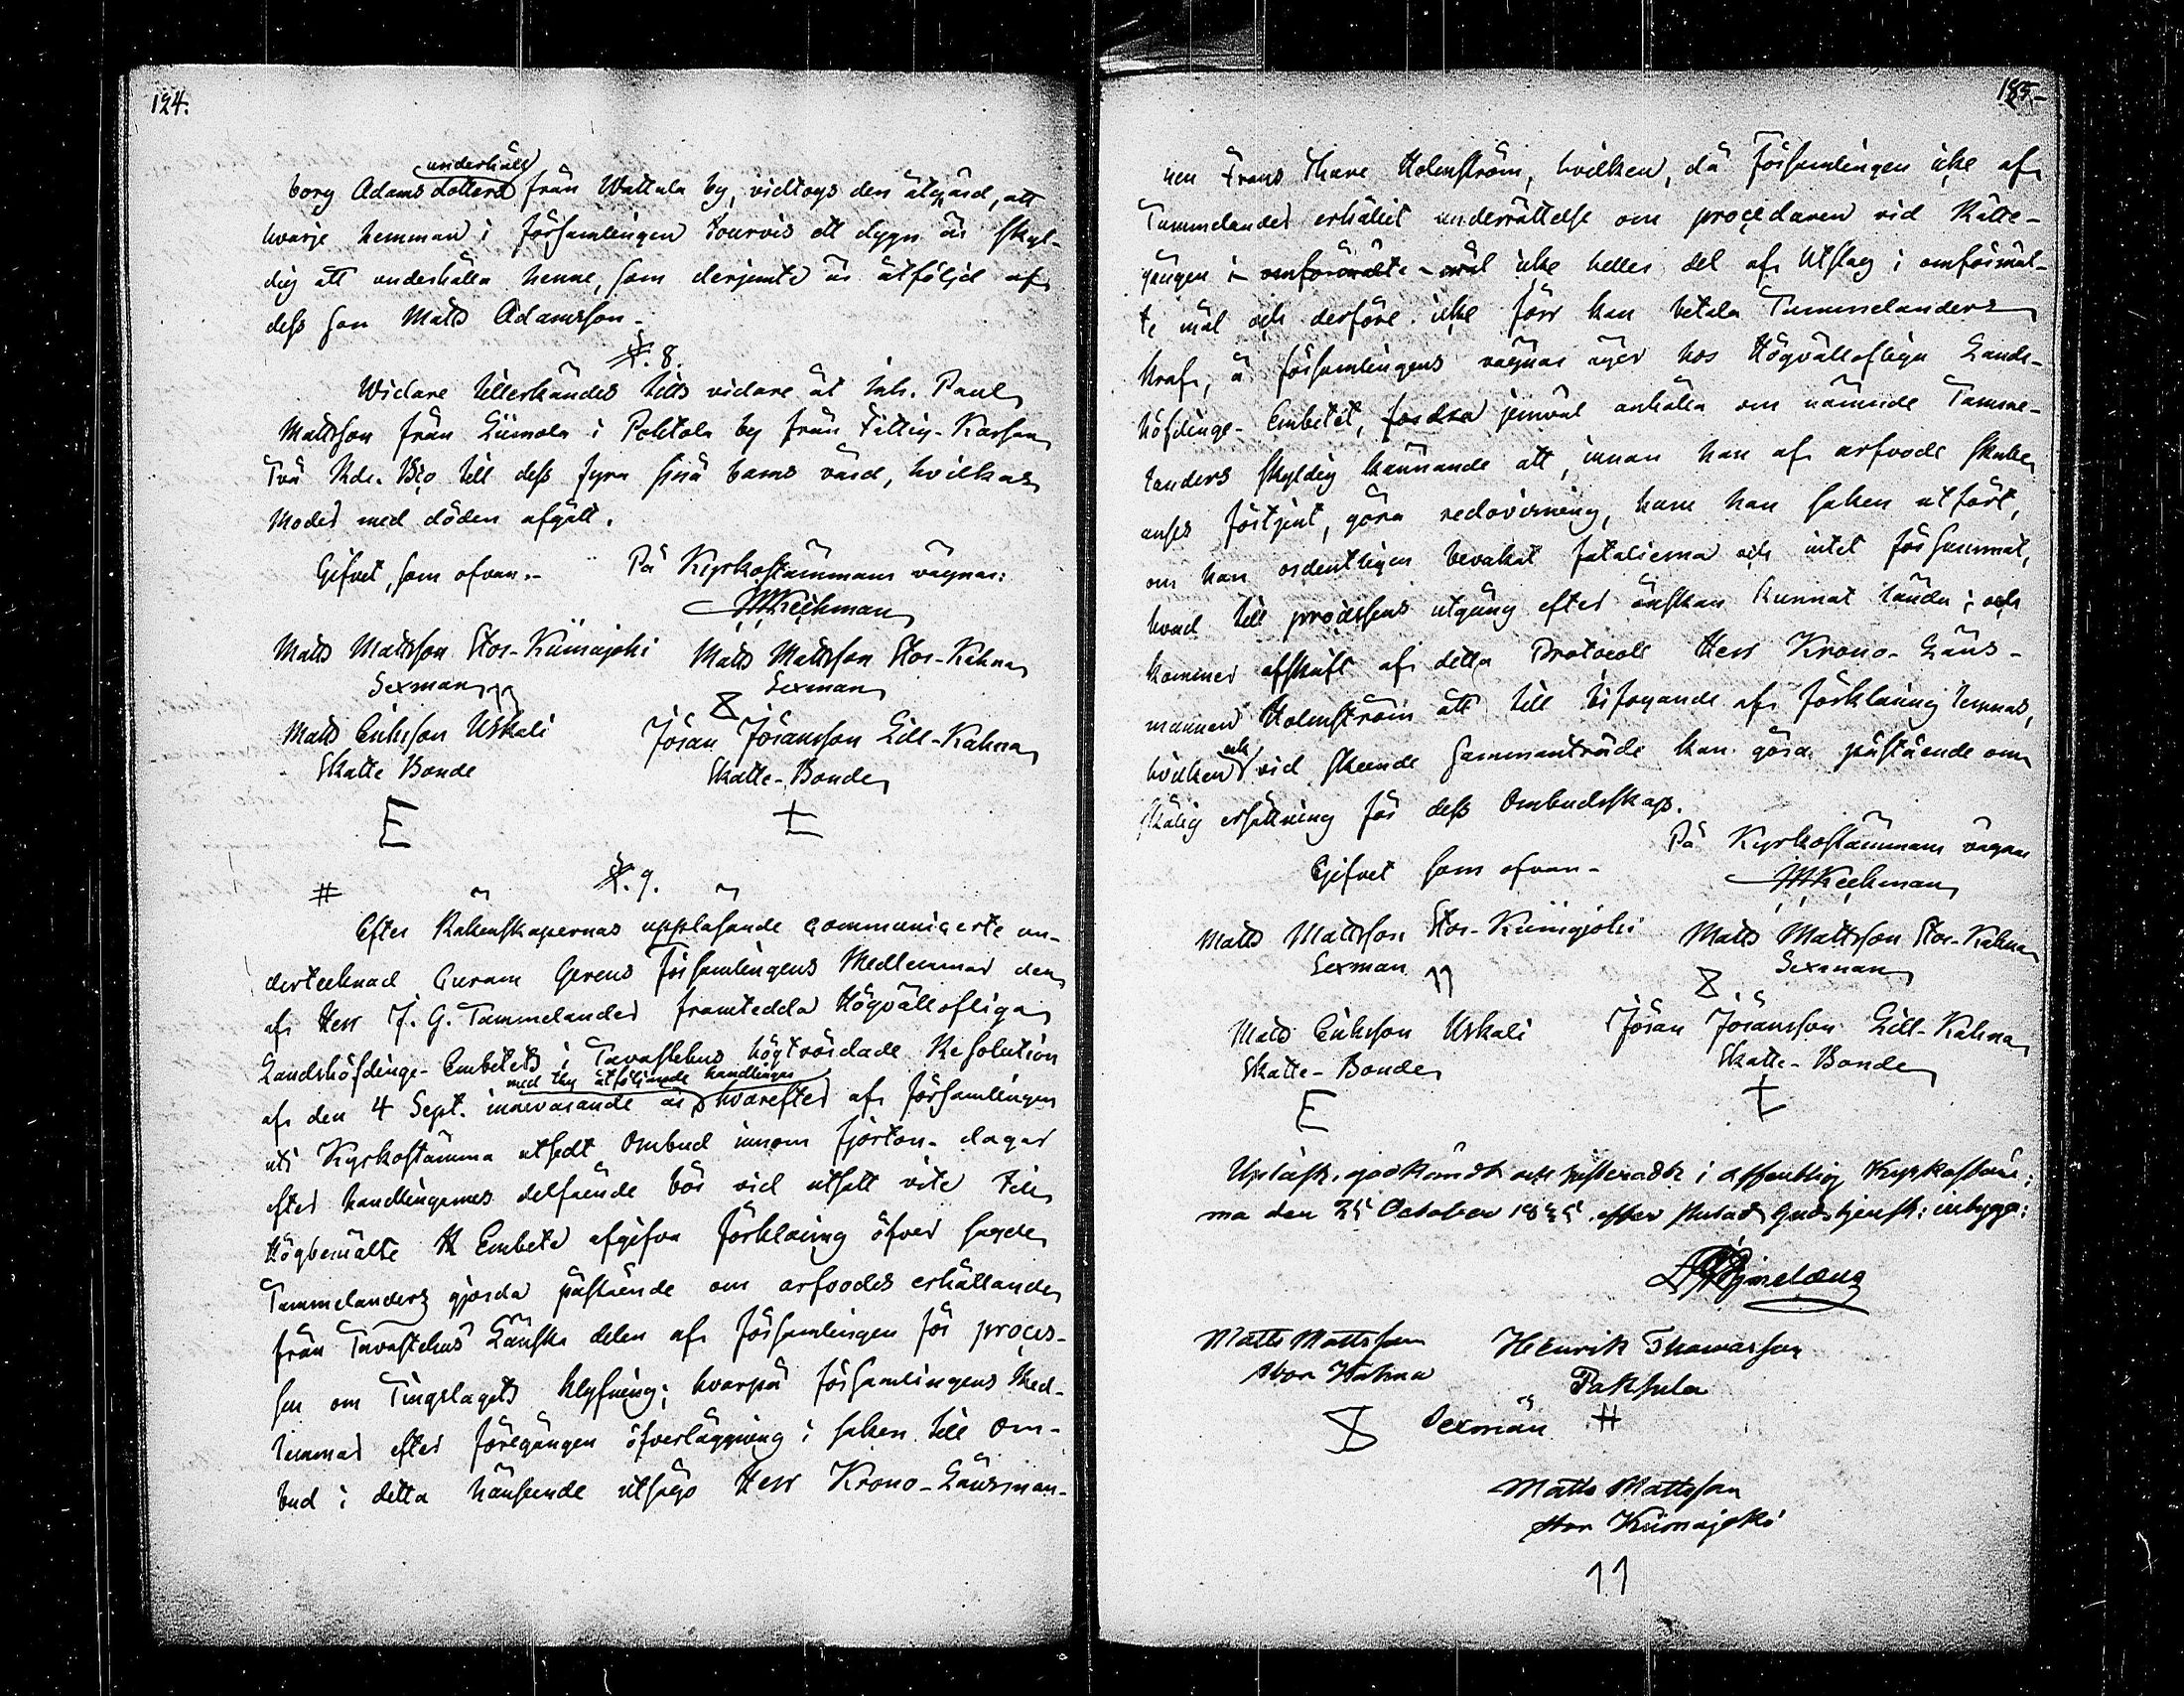 124.
underhåll
borg Adams dotters från Wattula by, vidtogs den åtgärd, att
hvarje hemman i församlingen tourvis ett dygn är skyl-
dig att underhålla henne, som derjemte är åtföljd af
dess son Matts Adamsson.
§. 8.
Widare tillerkändes tills vidare åt inh. Paul
Mattsson från Liimola i Pohtola by från Fattig-Kassan
Två Rdr. Bco till dess fyra små barns vård, hvilkas
Moder med döden afgått.
Gifvet, som ofvan.- På Kyrkostämmans vägnar:
M Keckman
Matts Mattsson Stor-Kiimajoki Matts Mattsson Stor-Kahna
Sexman 11 Sexman 8
Matts Eriksson Uskali Jöran Jöransson Lill-Kahna
Skatte Bonde Skatte-Bonde
E
§. 9.
#
Efter Räkenskapernas uppläsande communicerte un-
dertecknad Curam Gerens Församlingens Medlemmar den
af Herr J. G. Tammelander framtedda Högvällofliga
Landshöfdinge-Embetets i Tavastehus högtvördade Resolution
med thy åtföljande handlingar
af den 4 Sept. innevarande år, hvarefter af församlingen
uti Kyrkostämma utsedt Ombud innom fjorton dagar
efter handlingernes delfående bör vid utsatt vite till
Högbemälte Embete afgifva förklaring öfver sagde
Tammelanders gjorda påstående om arfvodes erhållande
från Tavastehus Länska delen af församlingen för proces-
sen om Tingslagets klyfning; hvarpå församlingens Med-
lemmar efter föregången öfverläggning i saken till Om-
bud i detta hänseende utsågo Herr Krono-Länsman-
125.-
nen Frans Thure Holmström, hvilken, då Församlingen icke af
Tammelander erhållit underrättelse om proceduren vid Rätte-
gången i omförmälte mål icke heller del af Utslag i omförmäl-
te mål och derföre icke förr kan betala Tammelanders
kraf, å församlingens vägnar äger hos Högvälloflige Lands-
höfdinge-Embetet, fordra jemväl anhålla om nämnde Tamme-
landers skyldig kännande att, innan han af arfvode skulle
anses förtjent, göra redovisning, huru han saken utfört,
om han ordentligen bevakat fatalierna och intet försummat,
hvad till processens utgång efter önskan kunnat lända; och
kommer afskrift af detta Protocoll Herr Krono-Läns-
mannen Holmström att till bifogande af förklaring lemnas,
och
hvilken vid skeende sammanträde kan göra påstående om
skälig ersättning för dess Ombudsskap.
Gifvet som ofvan- På Kyrkostämmans vägnar
M Keckman
Matts Mattsson Stor-Kiimajoki Matts Mattsson Stor-Kahna
Sexman 11 Sexman 8
Matts Eriksson Uskali Jöran Jöransson Lill-Kahna
Skatte-Bonde Skatte-Bonde
E
Upläst, godkändt och justeradt i offentlig Kyrkostäm-
ma den 25 October 1835 efter slutad Gudstjenst: intygar:
Matts Mattsson Henrik Thomasson
Stor Kahna Paksula
8 Sexmän #
Matts Mattsson
Stor Kiimajoki
11